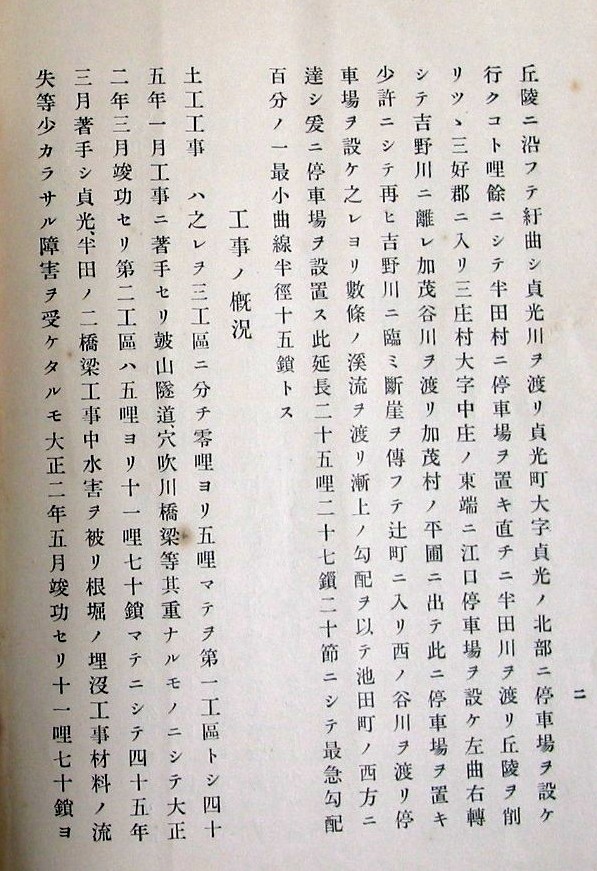 二
丘陵ニ沿フテ紆曲シ貞光川ヲ渡リ貞光町大字貞光ノ北部ニ停車場ヲ設ケ
行クコト哩餘ニシテ半田村ニ停車場ヲ置キ直チニ半田川ヲ渡リ丘陵ヲ削
リツヽ三好郡ニ入リ三庄村大字中庄ノ東端ニ江口停車場ヲ設ケ左曲右轉
シテ吉野川ニ離レ加茂谷川ヲ渡リ加茂村ノ平圃ニ出テ此ニ停車場ヲ置キ
少許ニシテ再ヒ吉野川ニ臨ミ斷崖ヲ傳フテ辻町ニ入リ西ノ谷川ヲ渡リ停
車場ヲ設ケ之レヨリ數條ノ溪流ヲ渡リ漸上ノ勾配ヲ以テ池田町ノ西方ニ
達シ爰ニ停車場ヲ設置ス此延長二十五哩二十七鎖二十節ニシテ最急勾配
百分ノ一最小曲線半徑十五鎖トス
工事ノ槪況
土工工事 ハ之レヲ三工區ニ分チ零哩ヨリ五哩マテヲ第一工區トシ四十
五年一月工事ニ著手セリ皷山隧道、穴吹川橋梁等其重ナルモノニシテ大正
二年三月竣功セリ第二工區ハ五哩ヨリ十一哩七十鎖マテニシテ四十五年
三月著手シ貞光、半田ノ二橋梁工事中水害ヲ被リ根堀ノ埋沒工事材料ノ流
失等少カラサル障害ヲ受ケタルモ大正二年五月竣功セリ十一哩七十鎖ヨ